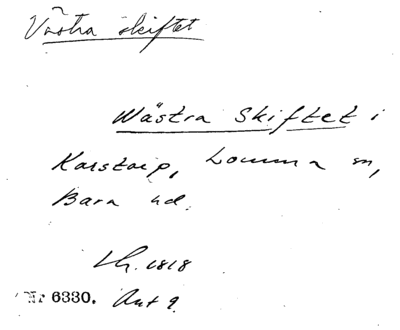 Västra skiftet
Wästra Skiftet i
Karstorp, Lomma sn,
Bara hd.
Lh. 1818
Nr 6330. Akt 9.